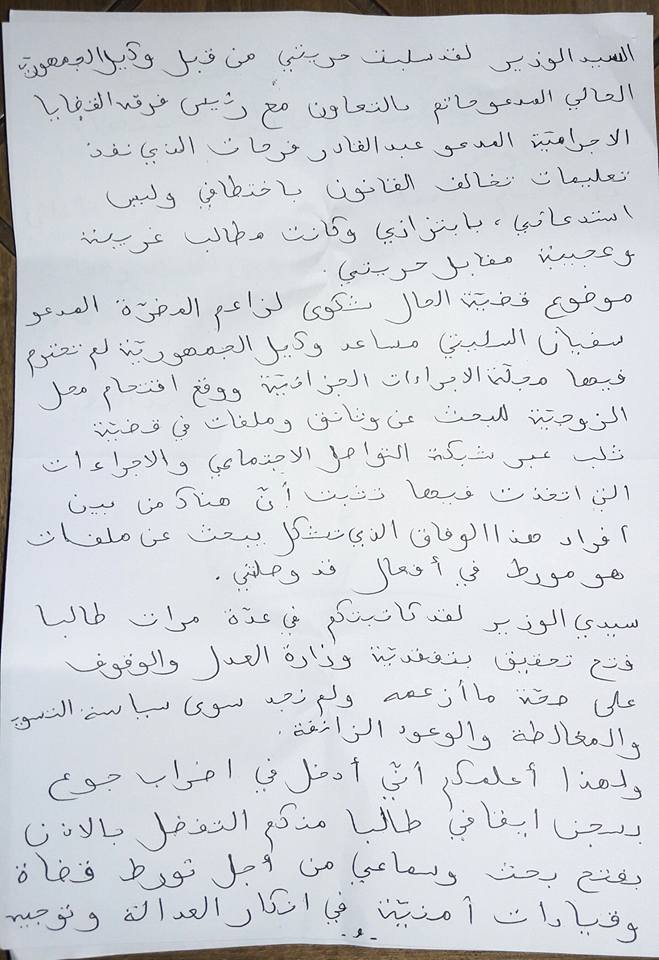 السيد الوزير لقد سلبت حريتي من قبل وكيل الجمهورية
الحالي المدعو حاتم بالتعاون مع رئيس فرقة القضايا
الاجرامية المدعو عبد القادر فرحات الذي نفذ
تعليمات تخالف القانون باختطافي وليس
استدعائي، بابتزازي وكانت مطالب غريبة
وعجيبة مقابل حريتي.
موضوع قضية الحال شكوى لزاعم المضرّة المدعو
سفيان السليتي مساعد وكيل الجمهوريّة لم تحترم
فيها مجلّة الاجراءات الجزائيّة ووقع اقتحام محل
الزوجيّة للبحث عن وثائق وملفات في قضيّة
ثلب عبر شبكة التواصل الاجتماعي والاجراءات
التي اتخذت فيها تثبت أنّ هناك من بين
أفراد هذا الوفاق الذي تشكل يبحث عن ملفات
هو مورط في أفعال قد وصلتني.
سيدي الوزير لقد كاتبتكم في عدّة مرات طالبا
فتح تحقيق بتفقديّة وزارة العدل والوقوف
على صحّة ما أزعمه ولم نجد سوى سياسة التسوير
والمغالطة والوعود الزائفة.
ولهذا أعلمكم أنّي أدخل في اضراب جوع
بسجن ايقافي طالبا منكم التفضل بالاذن
بفتح بحث وسماعي من أجل تورط قضاة
وقيادات أمنيّة في انكار العدالة وتوجيه